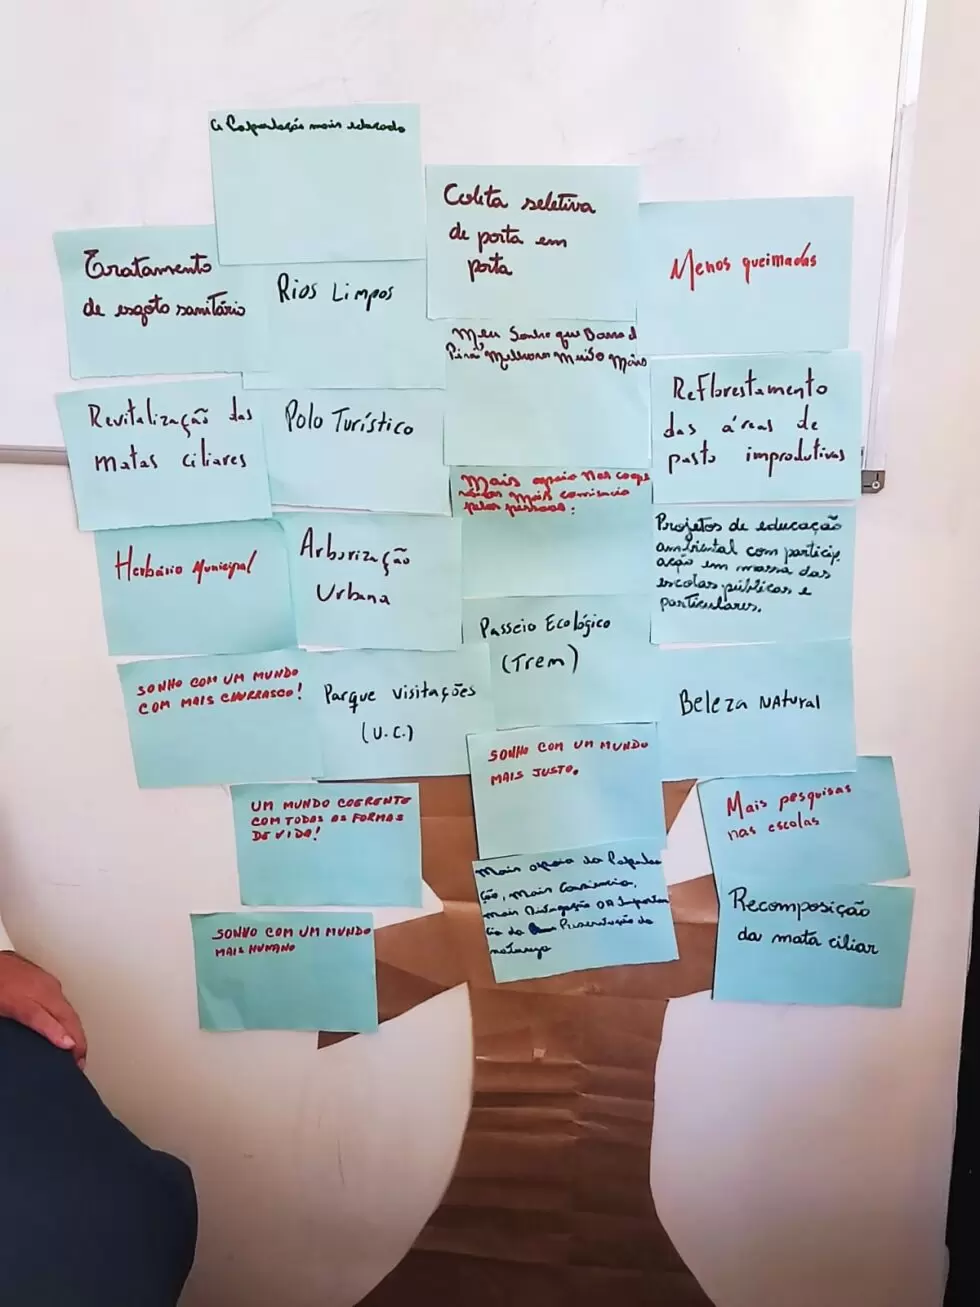 a População mais educada
Coleta seletiva
de porta em
porta
Menos queimadas
Tratamento
de esgoto sanitário
Rios Limpos
Meu Sonho que Barra d
Piraí Melhora Muito Mais
Reflorestamento
das áreas de
pasto improdutivas
Revitalização das
matas ciliares
Polo Turístico
Mais apoio nas coope
mais
pelas pessoas.
Projetos de educação
ambiental com particip
ação em massa das
escolas públicas e
particulares.
Herbário Municipal
Arborização
Urbana
Passeio Ecológico
(Trem)
SONHO COM UM MUNDO
COM MAIS CHURRASCO!
Parque visitações
(U.C.)
Beleza NAtural
SONHO COM UM MUNDO
MAIS JUSTO.
UM MUNDO COERENTE
COM TODAS AS FORMAS
DE VIDA!
Mais pesquisas
nas escolas
Mais apoio da Popula
ção, Mais Consiencia,
mais Divugação DA Importan
cia da Preservação da
natureza
Recomposição
da mata ciliar
SONHO COM UM MUNDO
MAIS HUMANO